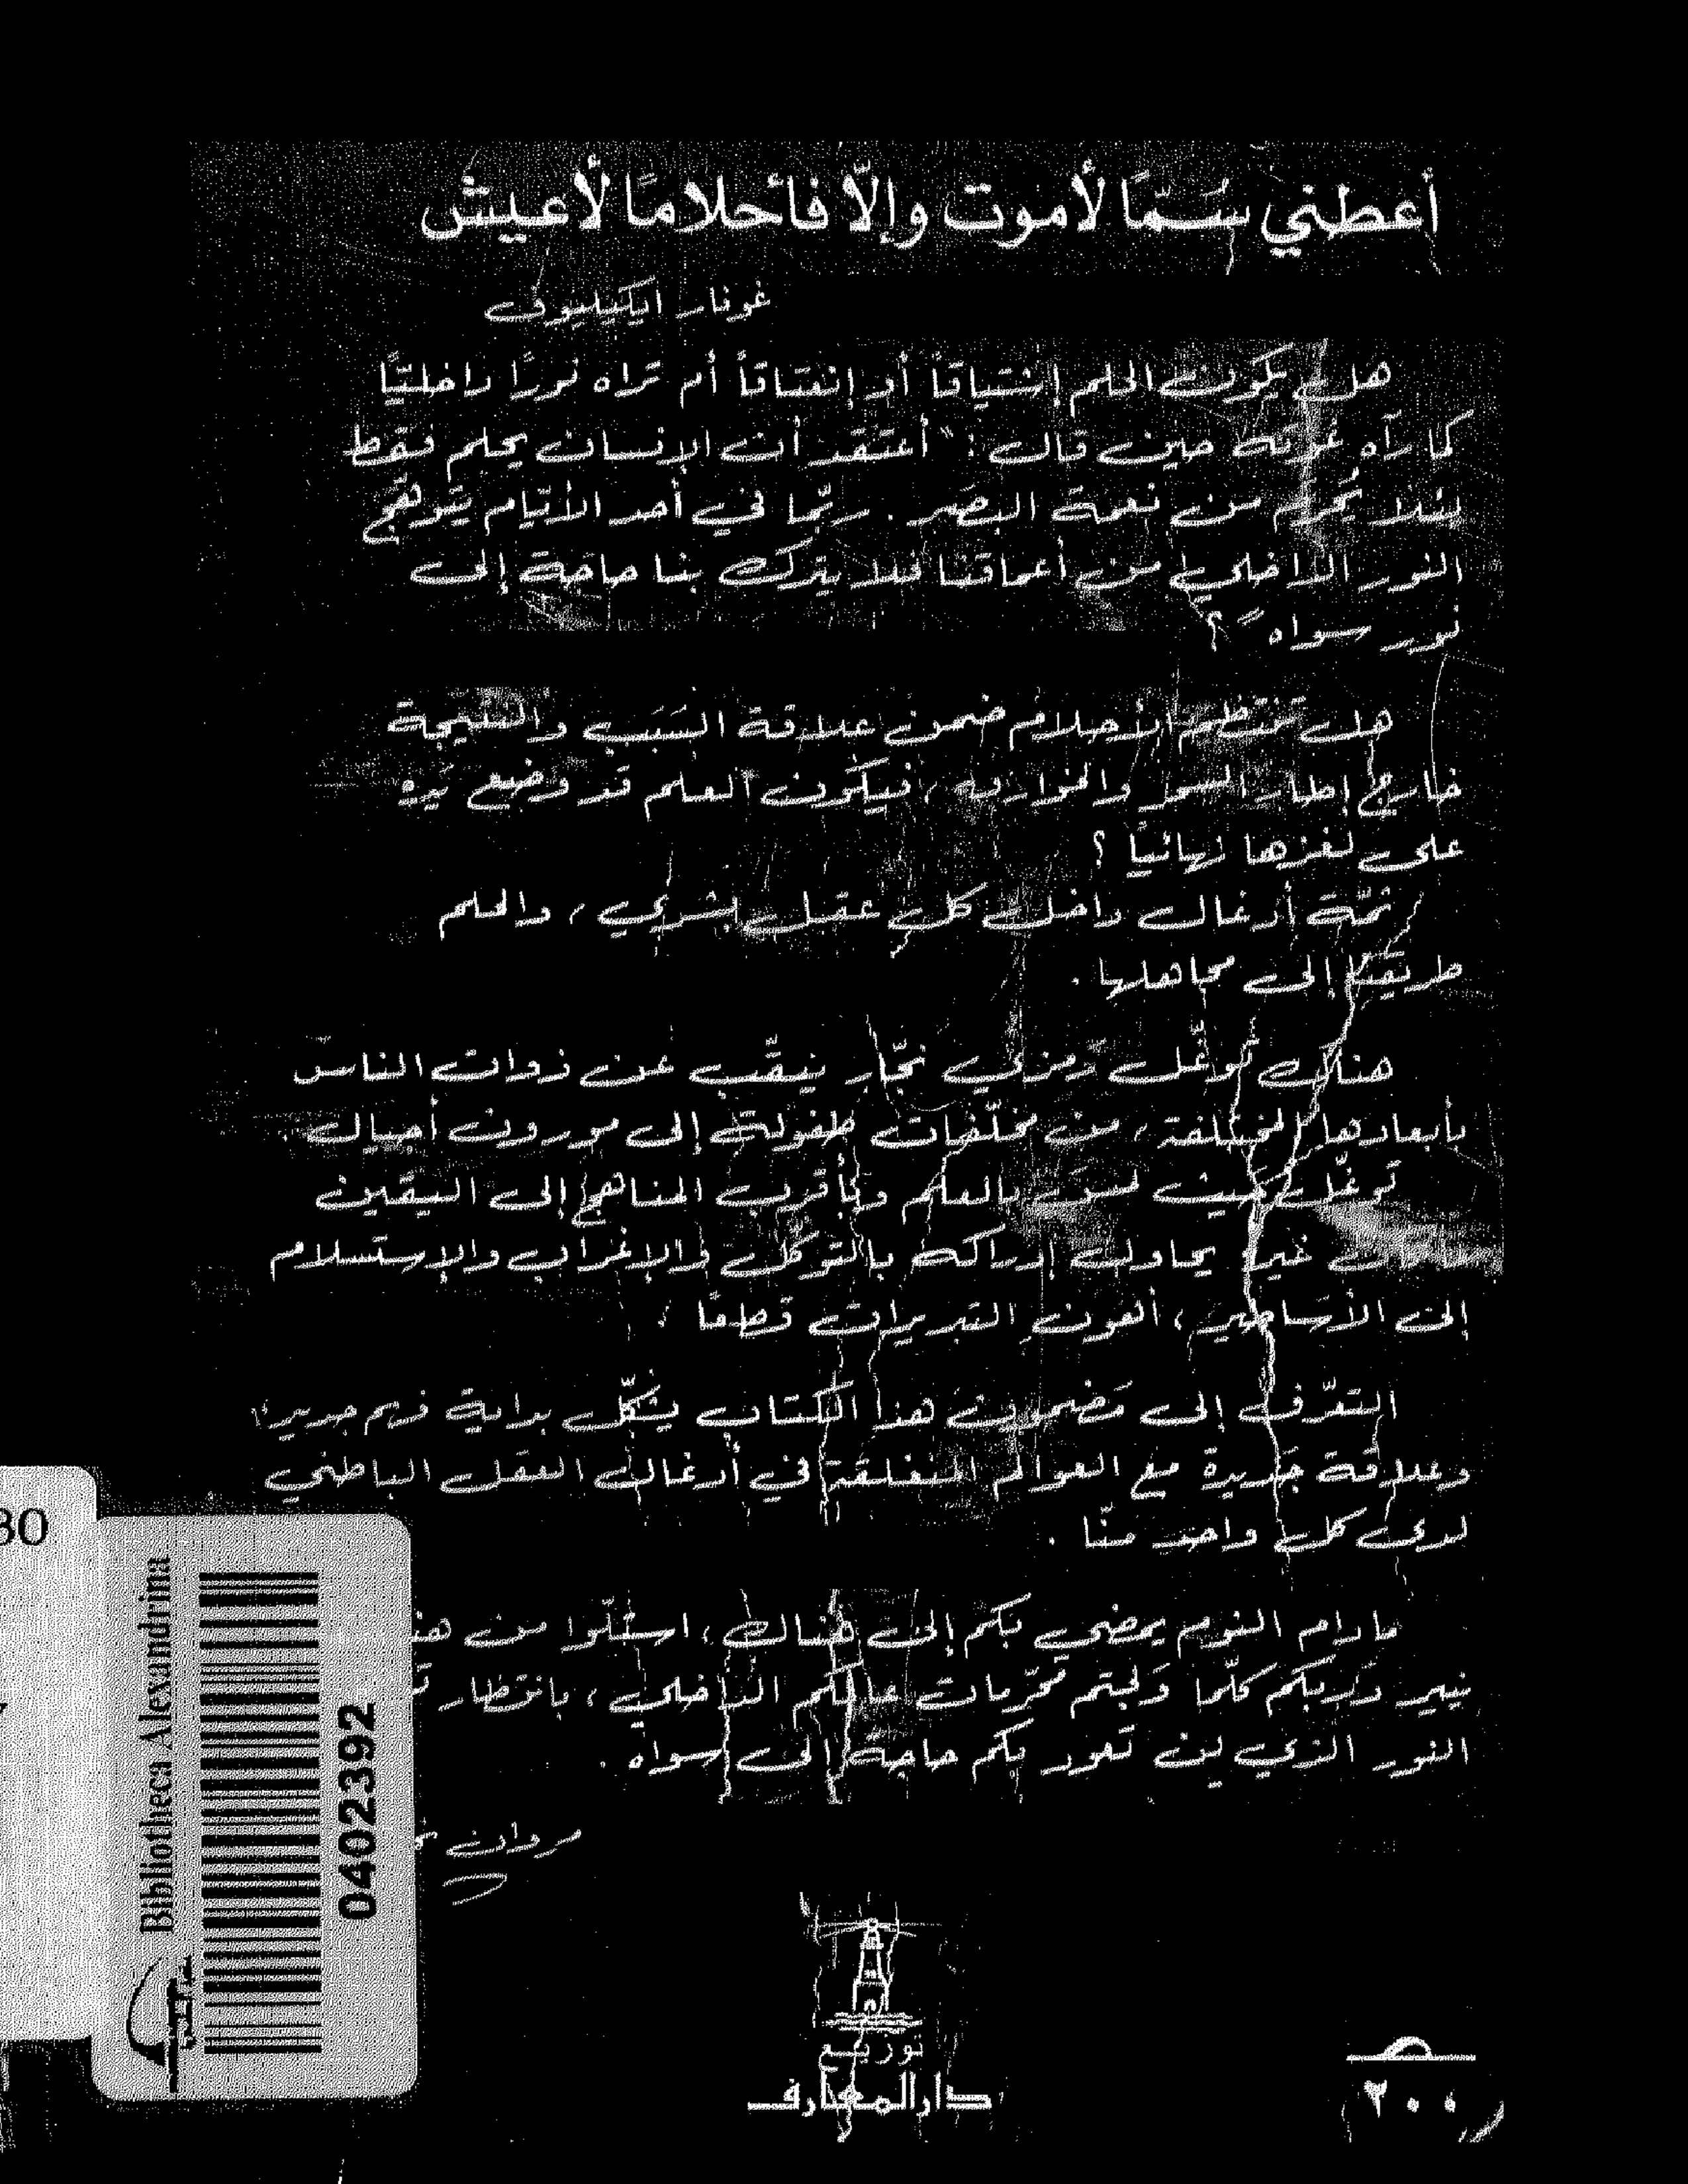 أعطني سُمّاً لأموت وإلّا فأحلاماً لأعيش
غونار ايكيليوف
هل يكون الحلم إشتياقاً أو إنعتاقاً أم تراه نورًا داخليًا
كما رآه غوته حين قال : "أعتقد أن الإنسان يحلم فقط
لئلا يُحرم من نعمة البصَر . ربّما في أحد الأيّام يتوهّج
النور الداخلي من أعماقنا فلا يترك بنا حاجة إلى
نور سواه" ؟
هل تنتظم الأحلام ضمن علاقة السَبَب والنتيجة
خارج إطار السحر والخوارق ، فيكون العلم قد وضع يده
على لغزها نهائياً ؟
ثمّة أدغال داخل كل عقل بشري ، والحلم
طريقنا إلى مجاهلها .
هناك توغّل رمزي نجّار ينقّب عن ذوات الناس
بأبعادها المختلفة ، من مخلّفات طفولة إلى موروث أجيال .
توغّل حيث بالعلم وبأقرب المناهج إلى اليقين
غيره يحاول إدراكه بالتوكل والإغراب والإستسلام
إلى الأساطير ، ألعون التبريرات قطعًا .
التعرّف إلى مَضمون هذا الكتاب يشكّل بداية فهم جديد
وعلاقة جَديدة مع العوالم المنغلقة في أدغال العقل الباطني
لدى كل واحد منّا .
ما دام النوم يمضي بكم إلى هناك ، استلّوا من
ينير دربكم كلّما وَلجتم عالمكم الداخلي ، بانتظار
النور الذي لن تعود بكم حاجة إلى سواه .
مروان
توزيع
دار المعارف
٢٠٠
30
Bibliotheca Alexandrina
0402392